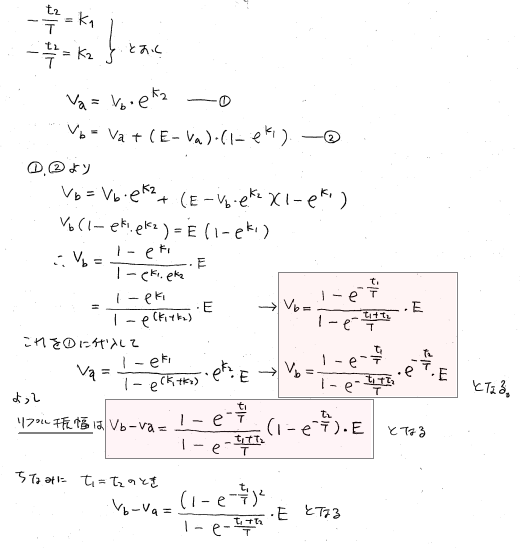 -t₂/T = K₁
-t₂/T = K₂ } とおく
Va = Vb・e^K₂ ―①
Vb = Va + (E-Va)・(1-e^K₁) ―②
①,②より
Vb = Vb・e^K₂ + (E-Vb・e^K₂)(1-e^K₁)
Vb(1-e^K₁・e^K₂) = E(1-e^K₁)
∴ Vb = (1-e^K₁)/(1-e^K₁・e^K₂)・E
= (1-e^K₁)/(1-e^(K₁+K₂))・E → Vb = (1-e^(-t₁/T))/(1-e^(-(t₁+t₂)/T))・E
これを①に代入して
Va = (1-e^K₁)/(1-e^(K₁+K₂))・e^K₂・E → Vb = (1-e^(-t₁/T))/(1-e^(-(t₁+t₂)/T))・e^(-t₂/T)・E となる。
よって
リプル振幅は Vb-Va = (1-e^(-t₁/T))/(1-e^(-(t₁+t₂)/T)) (1-e^(-t₂/T))・E となる
ちなみに t₁=t₂のとき
Vb-Va = (1-e^(-t₁/T))²/(1-e^(-(t₁+t₂)/T))・E となる